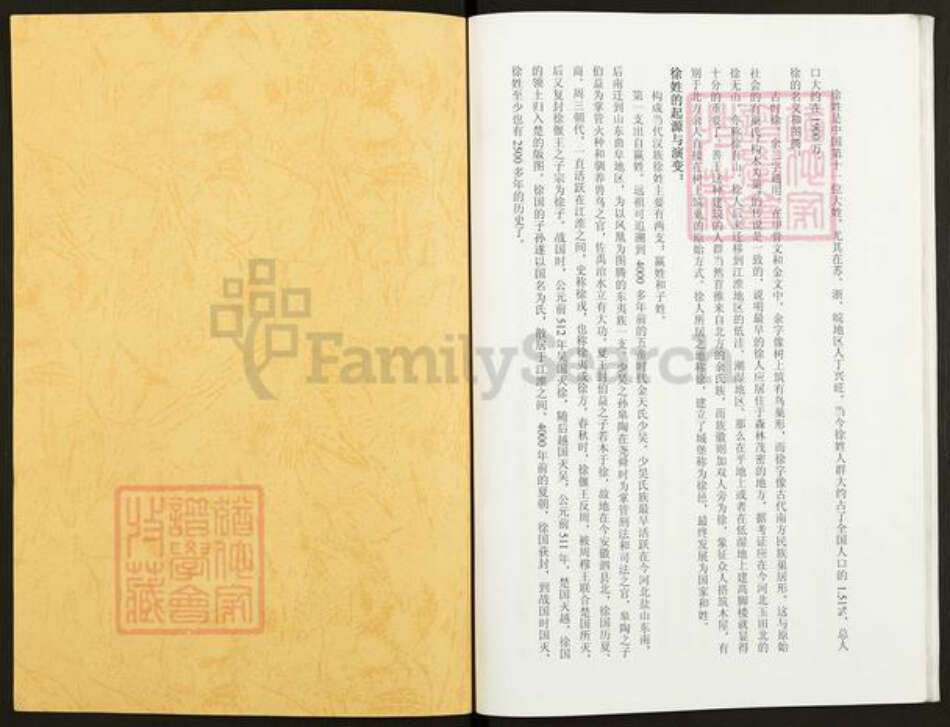 徐姓是中国第十一位大姓，尤其在苏、浙、皖地区人丁兴旺，当今徐姓人群大约占了全国人口的 1.51%，总人
口大约在 1900 万。
徐的名义和图腾：
古时徐、余三字通用，在甲骨文和金文中，余字像树上筑有鸟巢形，而徐字像古代南方民族巢居形，这与原始
社会的有巢氏“构木为巢”的传说是一致的，说明最早的徐人应居住于森林茂密的地方，据考证应在今河北玉田北的
徐无山，今称徐有山。徐人后来迁移到江淮地区的低洼、潮湿地区，那么在平地上或者在低湿地上建高脚楼就显得
十分的重要了，善于这种建筑的人群当然首推来自北方的余氏族，而族徽则加双人旁为徐，象征众人搭筑木屋，有
别于北方余人直接在树上筑巢的原始方式。徐人所居之地称徐，建立了城堡称为徐邑，最终发展为国家和姓。
徐姓的起源与演变：
构成当代汉族徐姓主要有两支：嬴姓和子姓。
第一支出自嬴姓。远祖可追溯到 4000 多年前的五帝时代金天氏少昊，少昊氏族最早活跃在今河北盐山东南，
后南迁到山东曲阜地区，为以凤凰为图腾的东夷族一支。少昊之孙皋陶在尧舜时为掌管刑法和司法之官，皋陶之子
伯益为掌管火种和驯养兽鸟之官，佐禹治水立有大功，夏王封伯益之子若木于徐，故地在今安徽泗县北，徐国历夏、
商、周三朝代，一直活跃在江淮之间，史称徐戎，也称徐夷或徐方。春秋时，徐偃王反周，被周穆王联合楚国所灭，
后又复封徐偃王之子宗为徐子。战国时，公元前 512 年吴国灭徐，随后越国灭吴，公元前 511 年，楚国灭越，徐国
的领土归入楚的版图，徐国的子孙遂以国名为氏，散居于江淮之间。4000 年前的夏朝，徐国获封，到战国时国灭，
徐姓至少也有 2500 多年的历史了。
FamilySearch